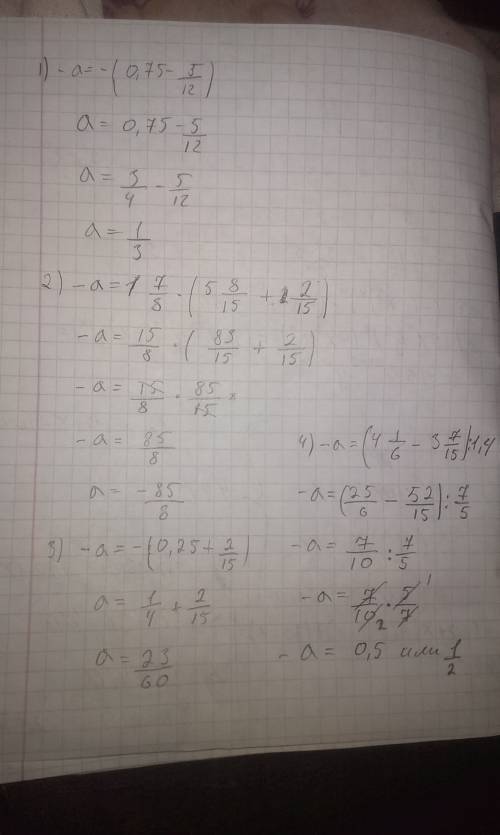 1) -a = -(0,75 - 5/12)
a = 0,75 - 5/12
a = 3/4 - 5/12
a = 1/3
2) -a = 1 7/8 · (5 8/15 + 2/15)
-a = 15/8 · (83/15 + 2/15)
-a = 15/8 · 85/15
-a = 85/8
a = -85/8
3) -a = -(0,25 + 2/15)
a = 1/4 + 2/15
a = 23/60
4) -a = (4 1/6 - 3 7/15) : 1,4
-a = (25/6 - 52/15) : 7/5
-a = 7/10 : 7/5
-a = 7/10 2 · 5/7 1
-a = 0,5 или 1/2